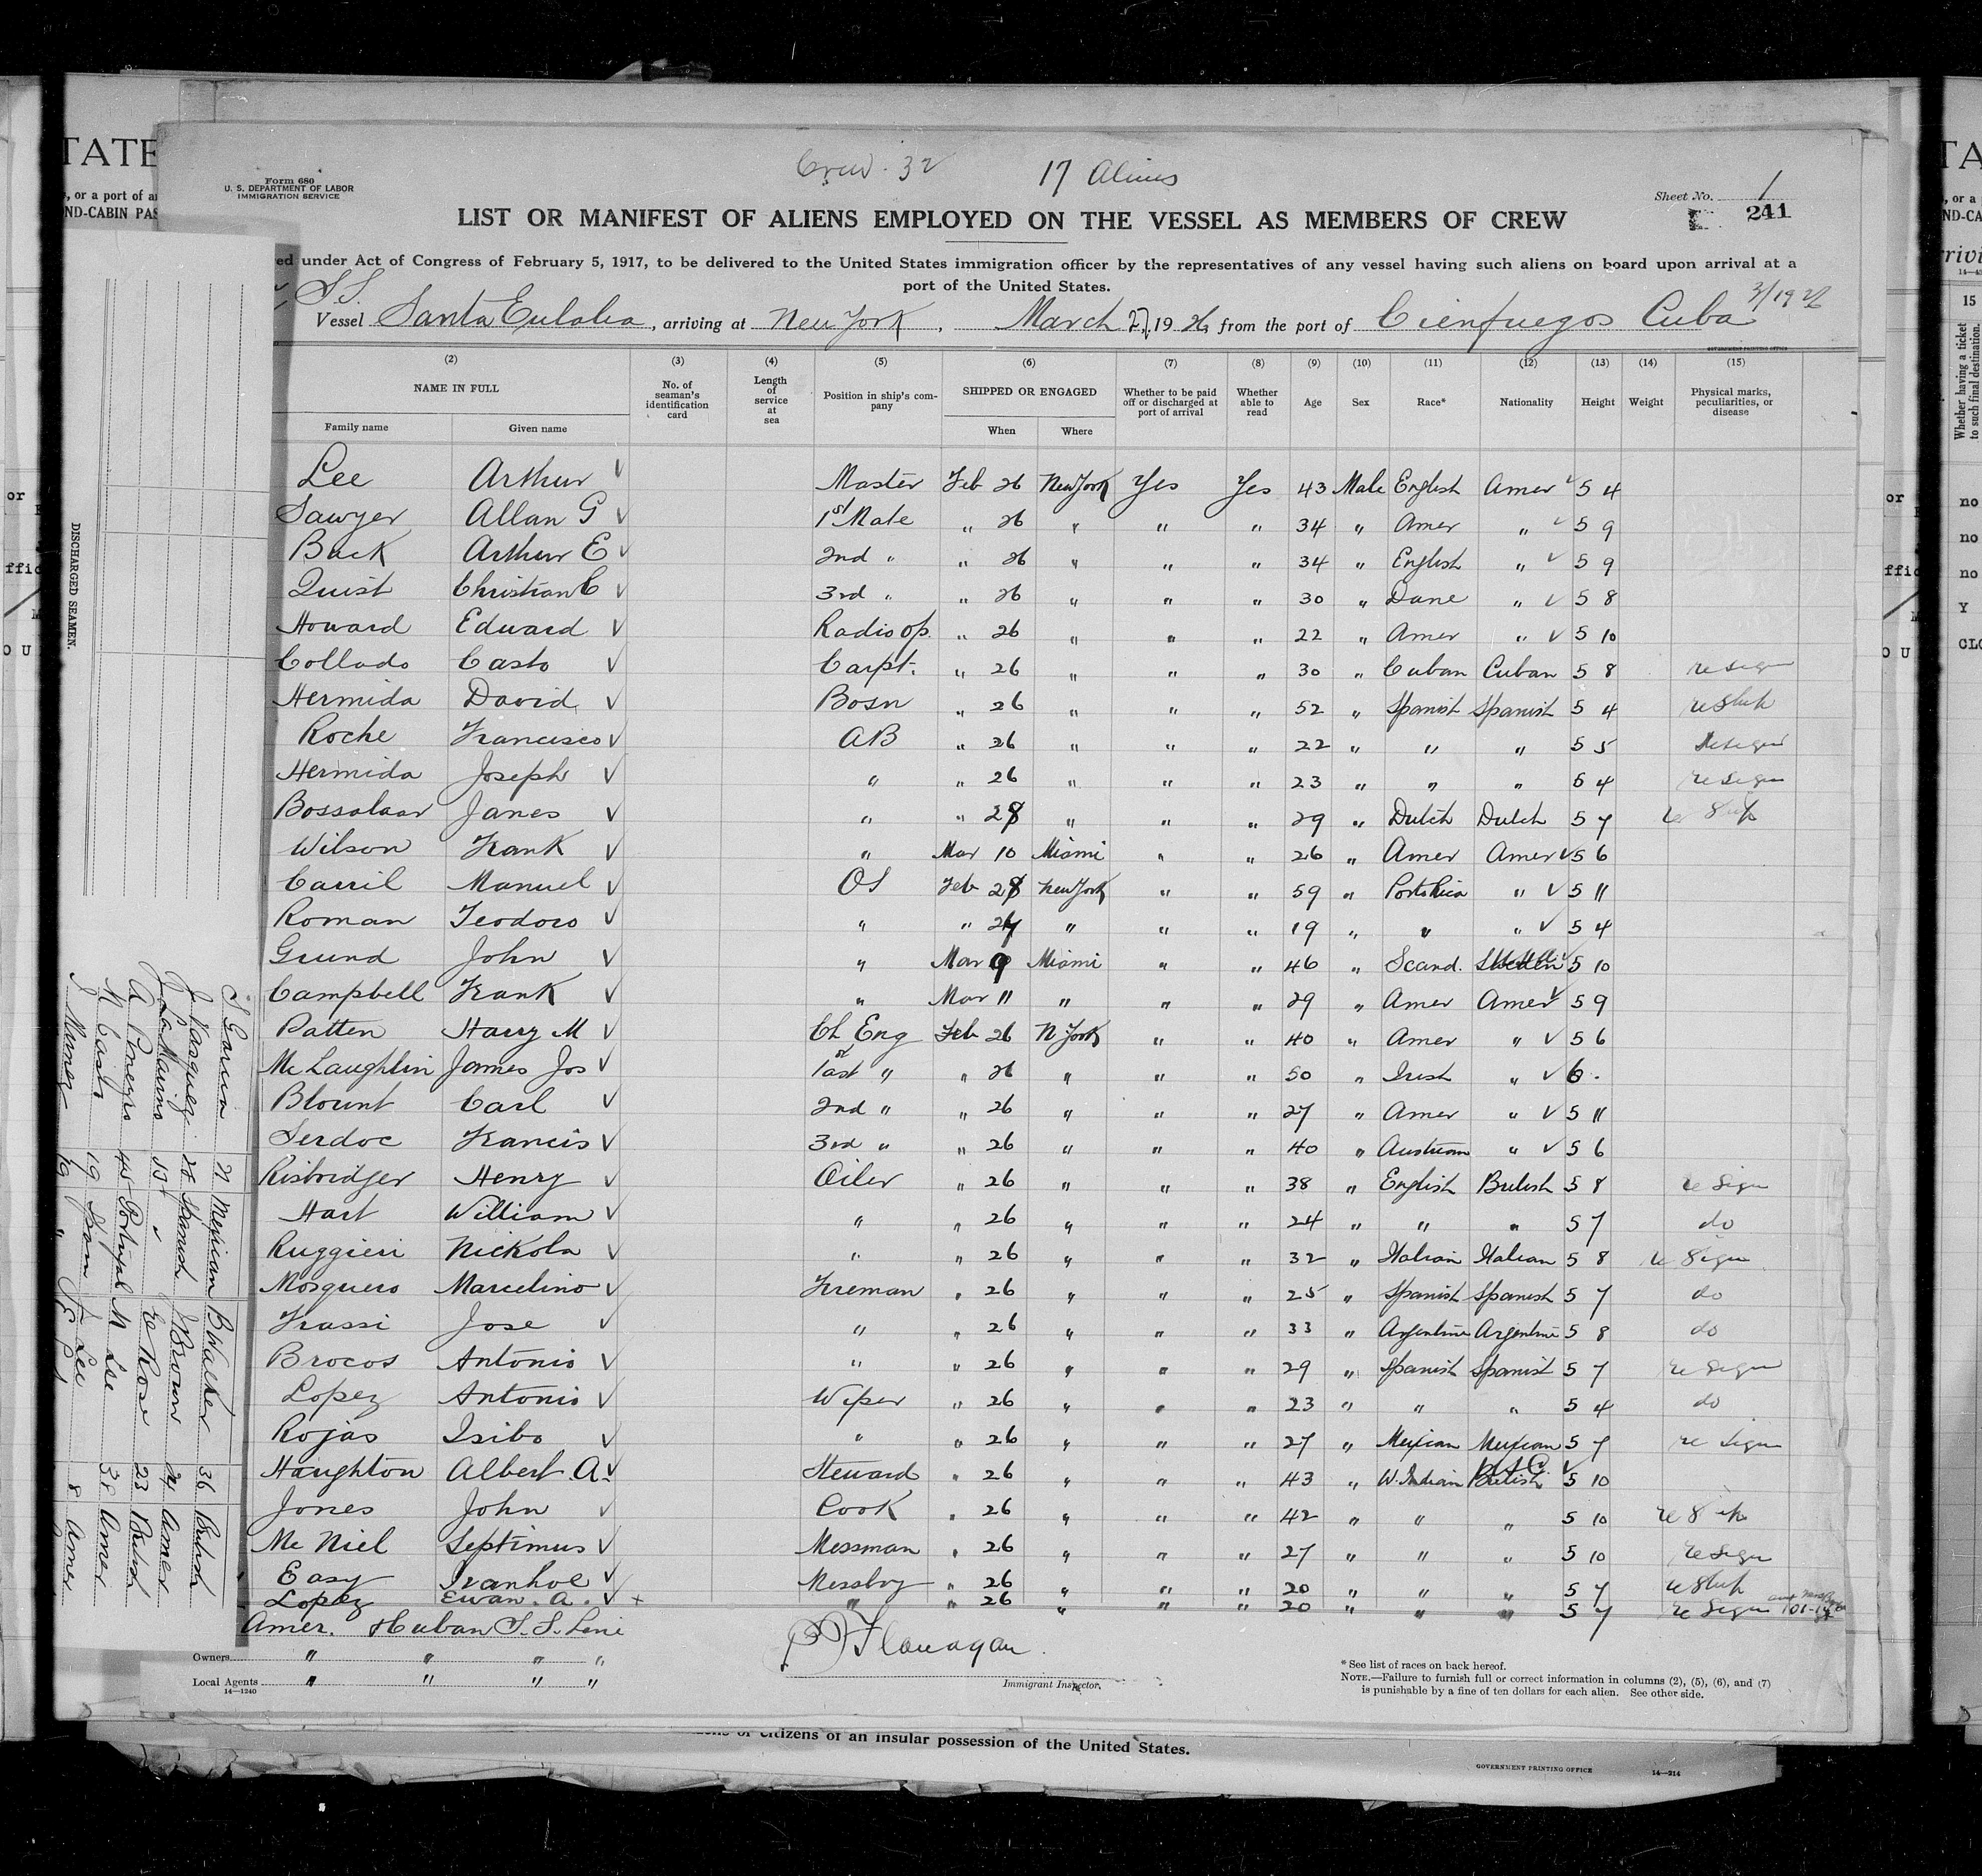 Crew. 32 17 Aliens
Form 680
U. S. DEPARTMENT OF LABOR
IMMIGRATION SERVICE
Sheet No. 1
241
LIST OR MANIFEST OF ALIENS EMPLOYED ON THE VESSEL AS MEMBERS OF CREW
ed under Act of Congress of February 5, 1917, to be delivered to the United States immigration officer by the representatives of any vessel having such aliens on board upon arrival at a
port of the United States.
S.S.
Vessel Santa Eulalia, arriving at New York, March 27, 1926, from the port of Cienfuegos Cuba
GOVERNMENT PRINTING OFFICE
(2) (3) (4) (5) (6) (7) (8) (9) (10) (11) (12) (13) (14) (15)
NAME IN FULL No. of seaman's identification card Length of service at sea Position in ship's company SHIPPED OR ENGAGED Whether to be paid off or discharged at port of arrival Whether able to read Age Sex Race* Nationality Height Weight Physical marks, peculiarities, or disease
Family name Given name When Where
Lee Arthur ✓ Master Feb 26 New York Yes Yes 43 Male English Amer ✓ 5 4
Sawyer Allan G ✓ 1st Mate " 26 " " " 34 " Amer " ✓ 5 9
Buck Arthur E ✓ 2nd " " 26 " " " 34 " English " ✓ 5 9
Quist Christian C ✓ 3rd " " 26 " " " 30 " Dane " ✓ 5 8
Howard Edward ✓ Radio op. " 26 " " " 22 " Amer " ✓ 5 10
Collado Casto ✓ Carpt. " 26 " " " 30 " Cuban Cuban 5 8 re sign
Hermida David ✓ Bosn " 26 " " " 52 " Spanish Spanish 5 4 re Ship
Roche Francisco ✓ AB " 26 " " " 22 " " " 5 5 Resign
Hermida Joseph ✓ " " 26 " " " 23 " " " 5 4 re sign
Bossalaar Janes ✓ " " 28 " " " 29 " Dutch Dutch 5 7 re Ship
Wilson Frank ✓ " Mar 10 Miami " " 26 " Amer Amer ✓ 5 6
Carril Manuel ✓ OS Feb 28 New York " " 59 " Porto Rica " ✓ 5 11
Roman Teodoro ✓ " " 27 " " " 19 " " " ✓ 5 4
Grund John ✓ " Mar 9 Miami " " 46 " Scand. Sweden ✓ 5 10
Campbell Frank ✓ " Mar 11 " " " 29 " Amer Amer ✓ 5 9
Patten Harry M ✓ Ch Eng Feb 26 N York " " 40 " Amer " ✓ 5 6
Mc Laughlin James Jos ✓ 1ast " " 26 " " " 50 " Irish " ✓ 6 .
Blount Carl ✓ 2nd " " 26 " " " 27 " Amer " ✓ 5 11
Serdoc Francis ✓ 3rd " " 26 " " " 40 " Austrian " ✓ 5 6
Risbridger Henry ✓ Oiler " 26 " " " 38 " English British 5 8 re Sign
Hart William ✓ " " 26 " " " 24 " " " 5 7 do
Ruggieri Nickola ✓ " " 26 " " " 32 " Italian Italian 5 8 re Sign
Mosquero Marcelino ✓ Fireman " 26 " " " 25 " Spanish Spanish 5 7 do
Frassi Jose ✓ " " 26 " " " 33 " Argentine Argentine 5 8 do
Brocos Antonio ✓ " " 26 " " " 29 " Spanish Spanish 5 7 re Sign
Lopez Antonio ✓ Wiper " 26 " " " 23 " " " 5 4 do
Rojas Isibo ✓ " " 26 " " " 27 " Mexican Mexican 5 7 re Sign
Haughton Albert A. ✓ Steward " 26 " " " 43 " W. Indian British ✓ 5 10
Jones John ✓ Cook " 26 " " " 42 " " " 5 10 re Ship
Mc Niel Septimus ✓ Messman " 26 " " " 27 " " " 5 10 re Sign
Easy Ivanhoe ✓ Messboy " 26 " " " 20 " " " 5 7 re Ship
Lopez Ewan. A. ✓ + " " 26 " " " 20 " " " 5 7 re Sign
Amer. Cuban S. S. Line
P Flanagan.
Owners " " " "
Local Agents " " " "
14—1240
Immigrant Inspector.
* See list of races on back hereof.
NOTE.—Failure to furnish full or correct information in columns (2), (5), (6), and (7)
is punishable by a fine of ten dollars for each alien. See other side.
of citizens of an insular possession of the United States.
GOVERNMENT PRINTING OFFICE 14—214
DISCHARGED SEAMEN.
Garcia 21 Mexican B Walker 36 British
J Vasquez 28 Spanish J Brown 24 Amer
J La Maino 53 " Rose 23 British
A Pineyro 45 Portugal N Lee 38 Amer
N Castro 19 Spain J Lee 8 Amer
J Munez 19 "
TATE
, or a port of
ND-CABIN PAS
15
Whether having a ticket
to such final destination.
no
no
no
Y